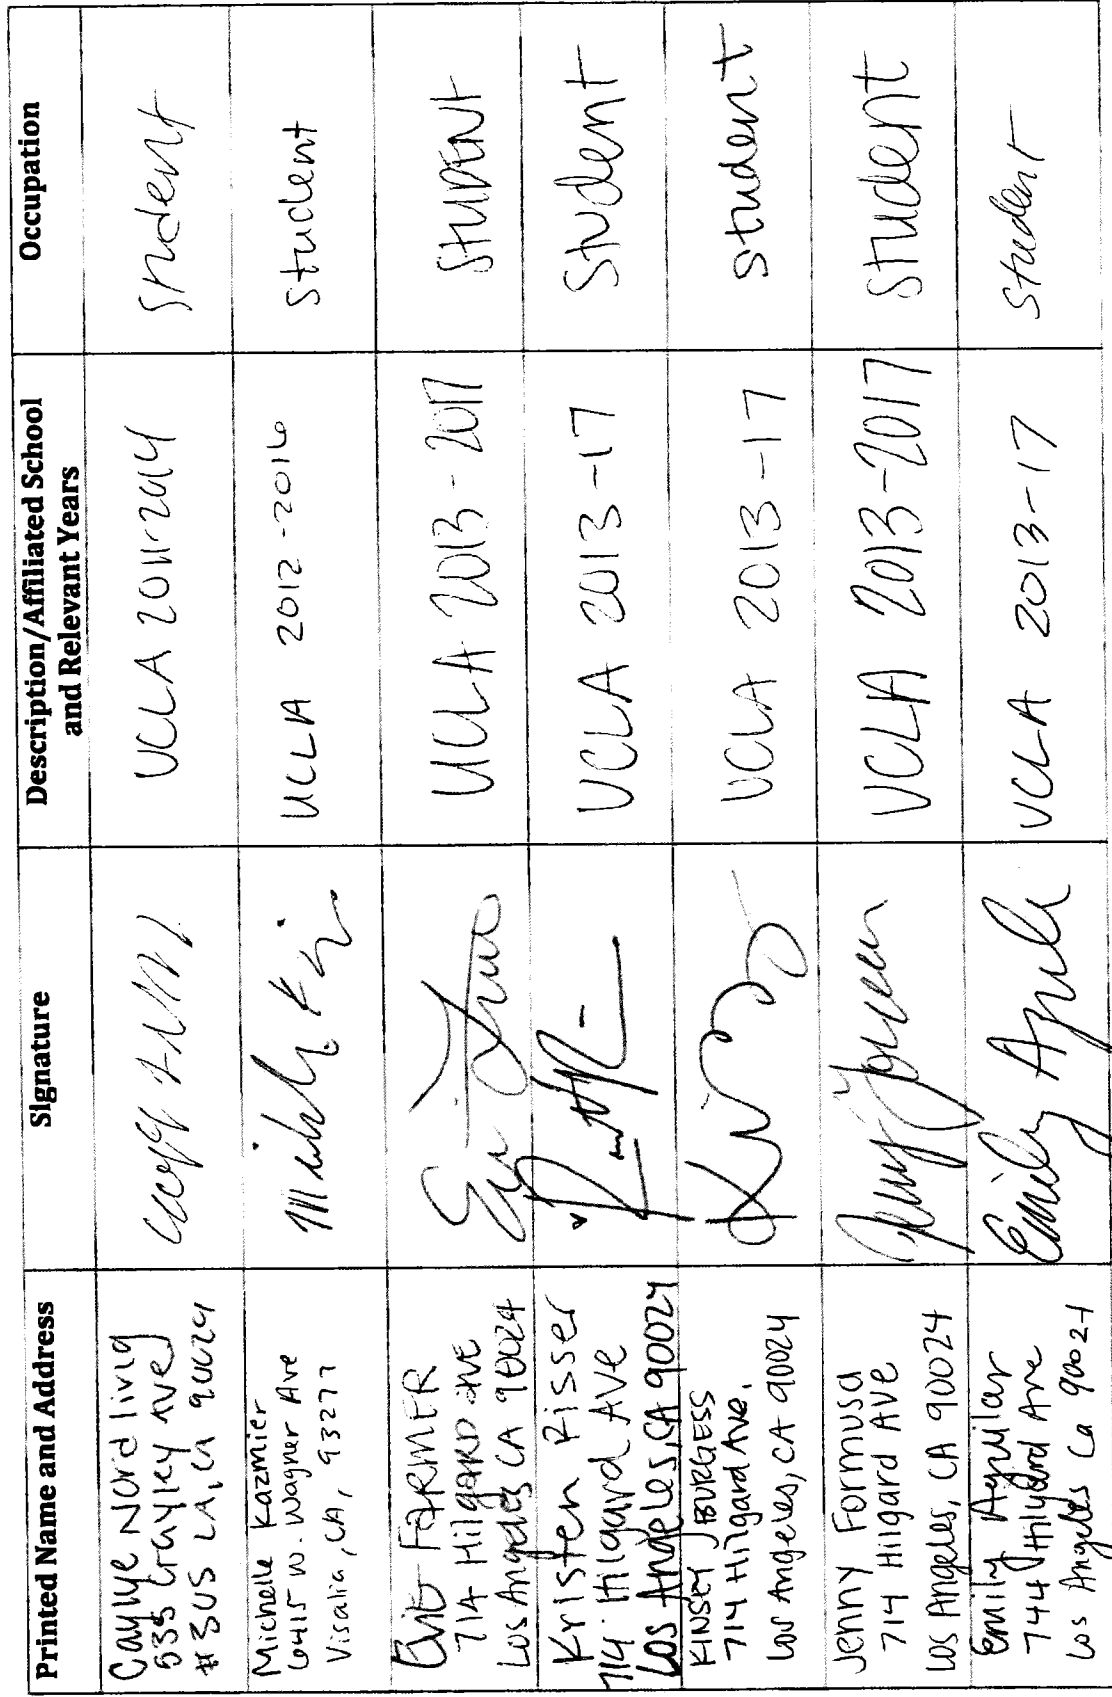 Printed Name and Address
Signature
Description/Affiliated School
and Relevant Years
Occupation
Caylye Nordling
535 Gayley Ave
#305 LA, CA 90024
UCLA 2011-2014
Student
Michelle Kazmier
6415 W. Wagner Ave
Visalia, CA, 93277
UCLA 2012-2016
Student
FARMER
714 Hilgard AVE
Los Angeles CA 90024
UCLA 2013-2017
STUDENT
Kristen Risser
714 Hilgard AVE
Los Angeles, CA 90024
UCLA 2013-17
Student
KINSEY BURGESS
714 Hilgard Ave.
Los Angeles, CA 90024
UCLA 2013-17
student
Jenny Formusa
714 Hilgard AVE
Los Angeles, CA 90024
UCLA 2013-2017
Student
Emily Aguilar
744 Hilgard Ave
Los Angeles Ca 90024
Emily
UCLA 2013-17
Student